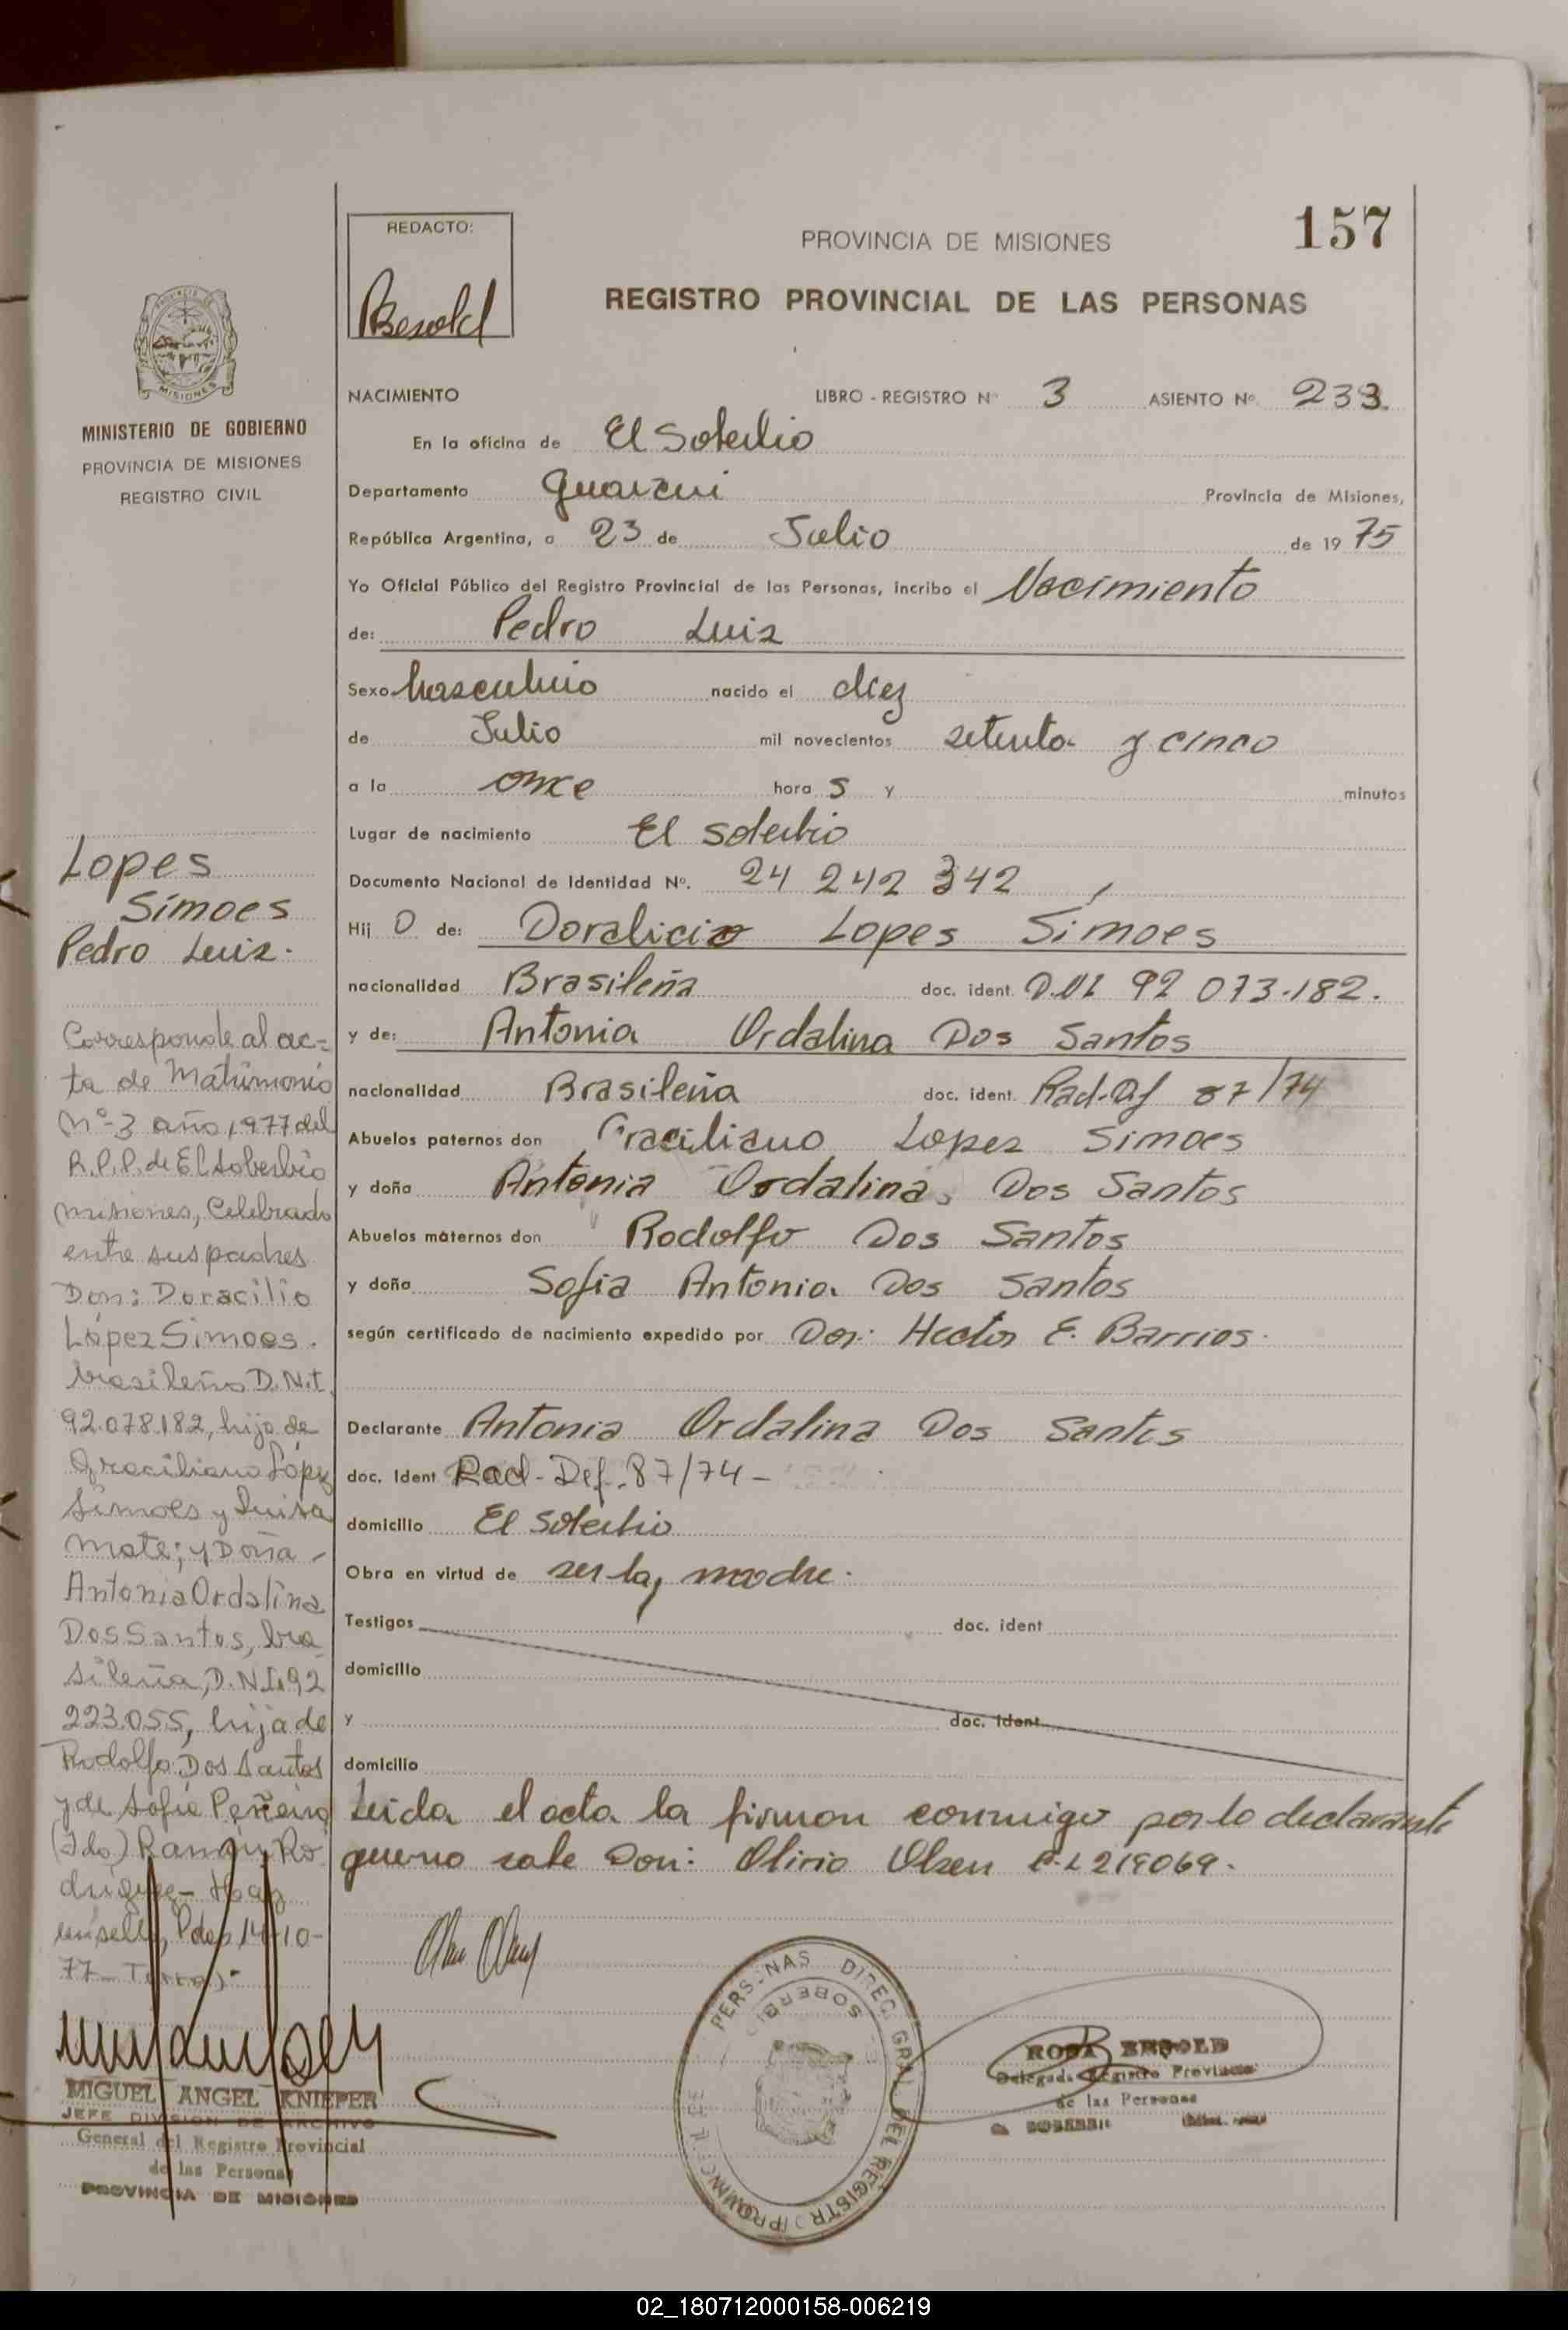 157
REDACTO:
Besold
PROVINCIA DE MISIONES
REGISTRO PROVINCIAL DE LAS PERSONAS
MISIONES
MINISTERIO DE GOBIERNO
PROVINCIA DE MISIONES
REGISTRO CIVIL
NACIMIENTO LIBRO - REGISTRO Nº 3 ASIENTO Nº 233
En la oficina de El Soberbio
Departamento Guarani Provincia de Misiones,
República Argentina, a 23 de Julio de 1975
Yo Oficial Público del Registro Provincial de las Personas, incribo el Nacimiento
de: Pedro Luis
Sexo Masculino nacido el diez
de Julio mil novecientos setenta y cinco
a la once hora s y minutos
Lugar de nacimiento El Soberbio
Documento Nacional de Identidad Nº. 24 242 342
Hij o de: Doralicio Lopes Simoes
nacionalidad Brasileña doc. ident. D.N.I 92 073.182.
y de: Antonia Ordalina Dos Santos
nacionalidad Brasileña doc. ident. Rad-Df 87/74
Abuelos paternos don Graciliano Lopez Simoes
y doña Antonia Ordalina Dos Santos
Abuelos maternos don Rodolfo Dos Santos
y doña Sofia Antonia Dos Santos
según certificado de nacimiento expedido por Dor: Hector E. Barrios.
Declarante Antonia Ordalina Dos Santos
doc. Ident Rad-Def.87/74-
domicilio El Soberbio
Obra en virtud de ser la, madre.
Testigos doc. ident
domicilio
y doc. ident
domicilio
Leida el acta la firman conmigo por lo declarante
que no sabe Don: Olirio Olsen C.I 219069.
Lopes
Simoes
Pedro Luis.
Corresponde al ac=
ta de Matrimonio
Nº-3 año 1977 del
R.P.P. de El Soberbio
misiones, Celebrado
entre sus padres
Don: Doracilio
López Simoes.
brasileño D.N.I.
92.078.182, hijo de
Graciliano López
Simoes y Luisa
Mote; y Doña -
Antonia Ordalina
Dos Santos, bra
sileña, D.N.I.92
223.055, hija de
Rodolfo Dos Santos
y de Sofia Pereira
(Fdo) Ramón Ro
driguez- Hay
un sello, Pdas 14-10-
77-
MIGUEL ANGEL KNIEPER
JEFE DIVISION DE ARCHIVO
General del Registro Provincial
de las Personas
PROVINCIA DE MISIONES
PERSONAS DIREC. GRAL DEL REGISTRO PROVINCIAL DE
SOBERBIO
ROSA BESOLD
Delegada Registro Provincial
de las Personas
02_180712000158-006219